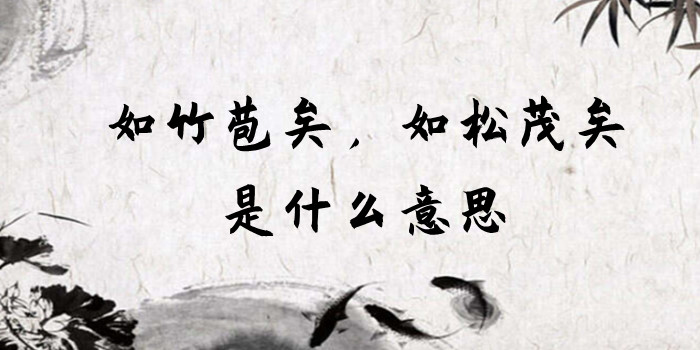 如竹苞矣，如松茂矣
是什么意思